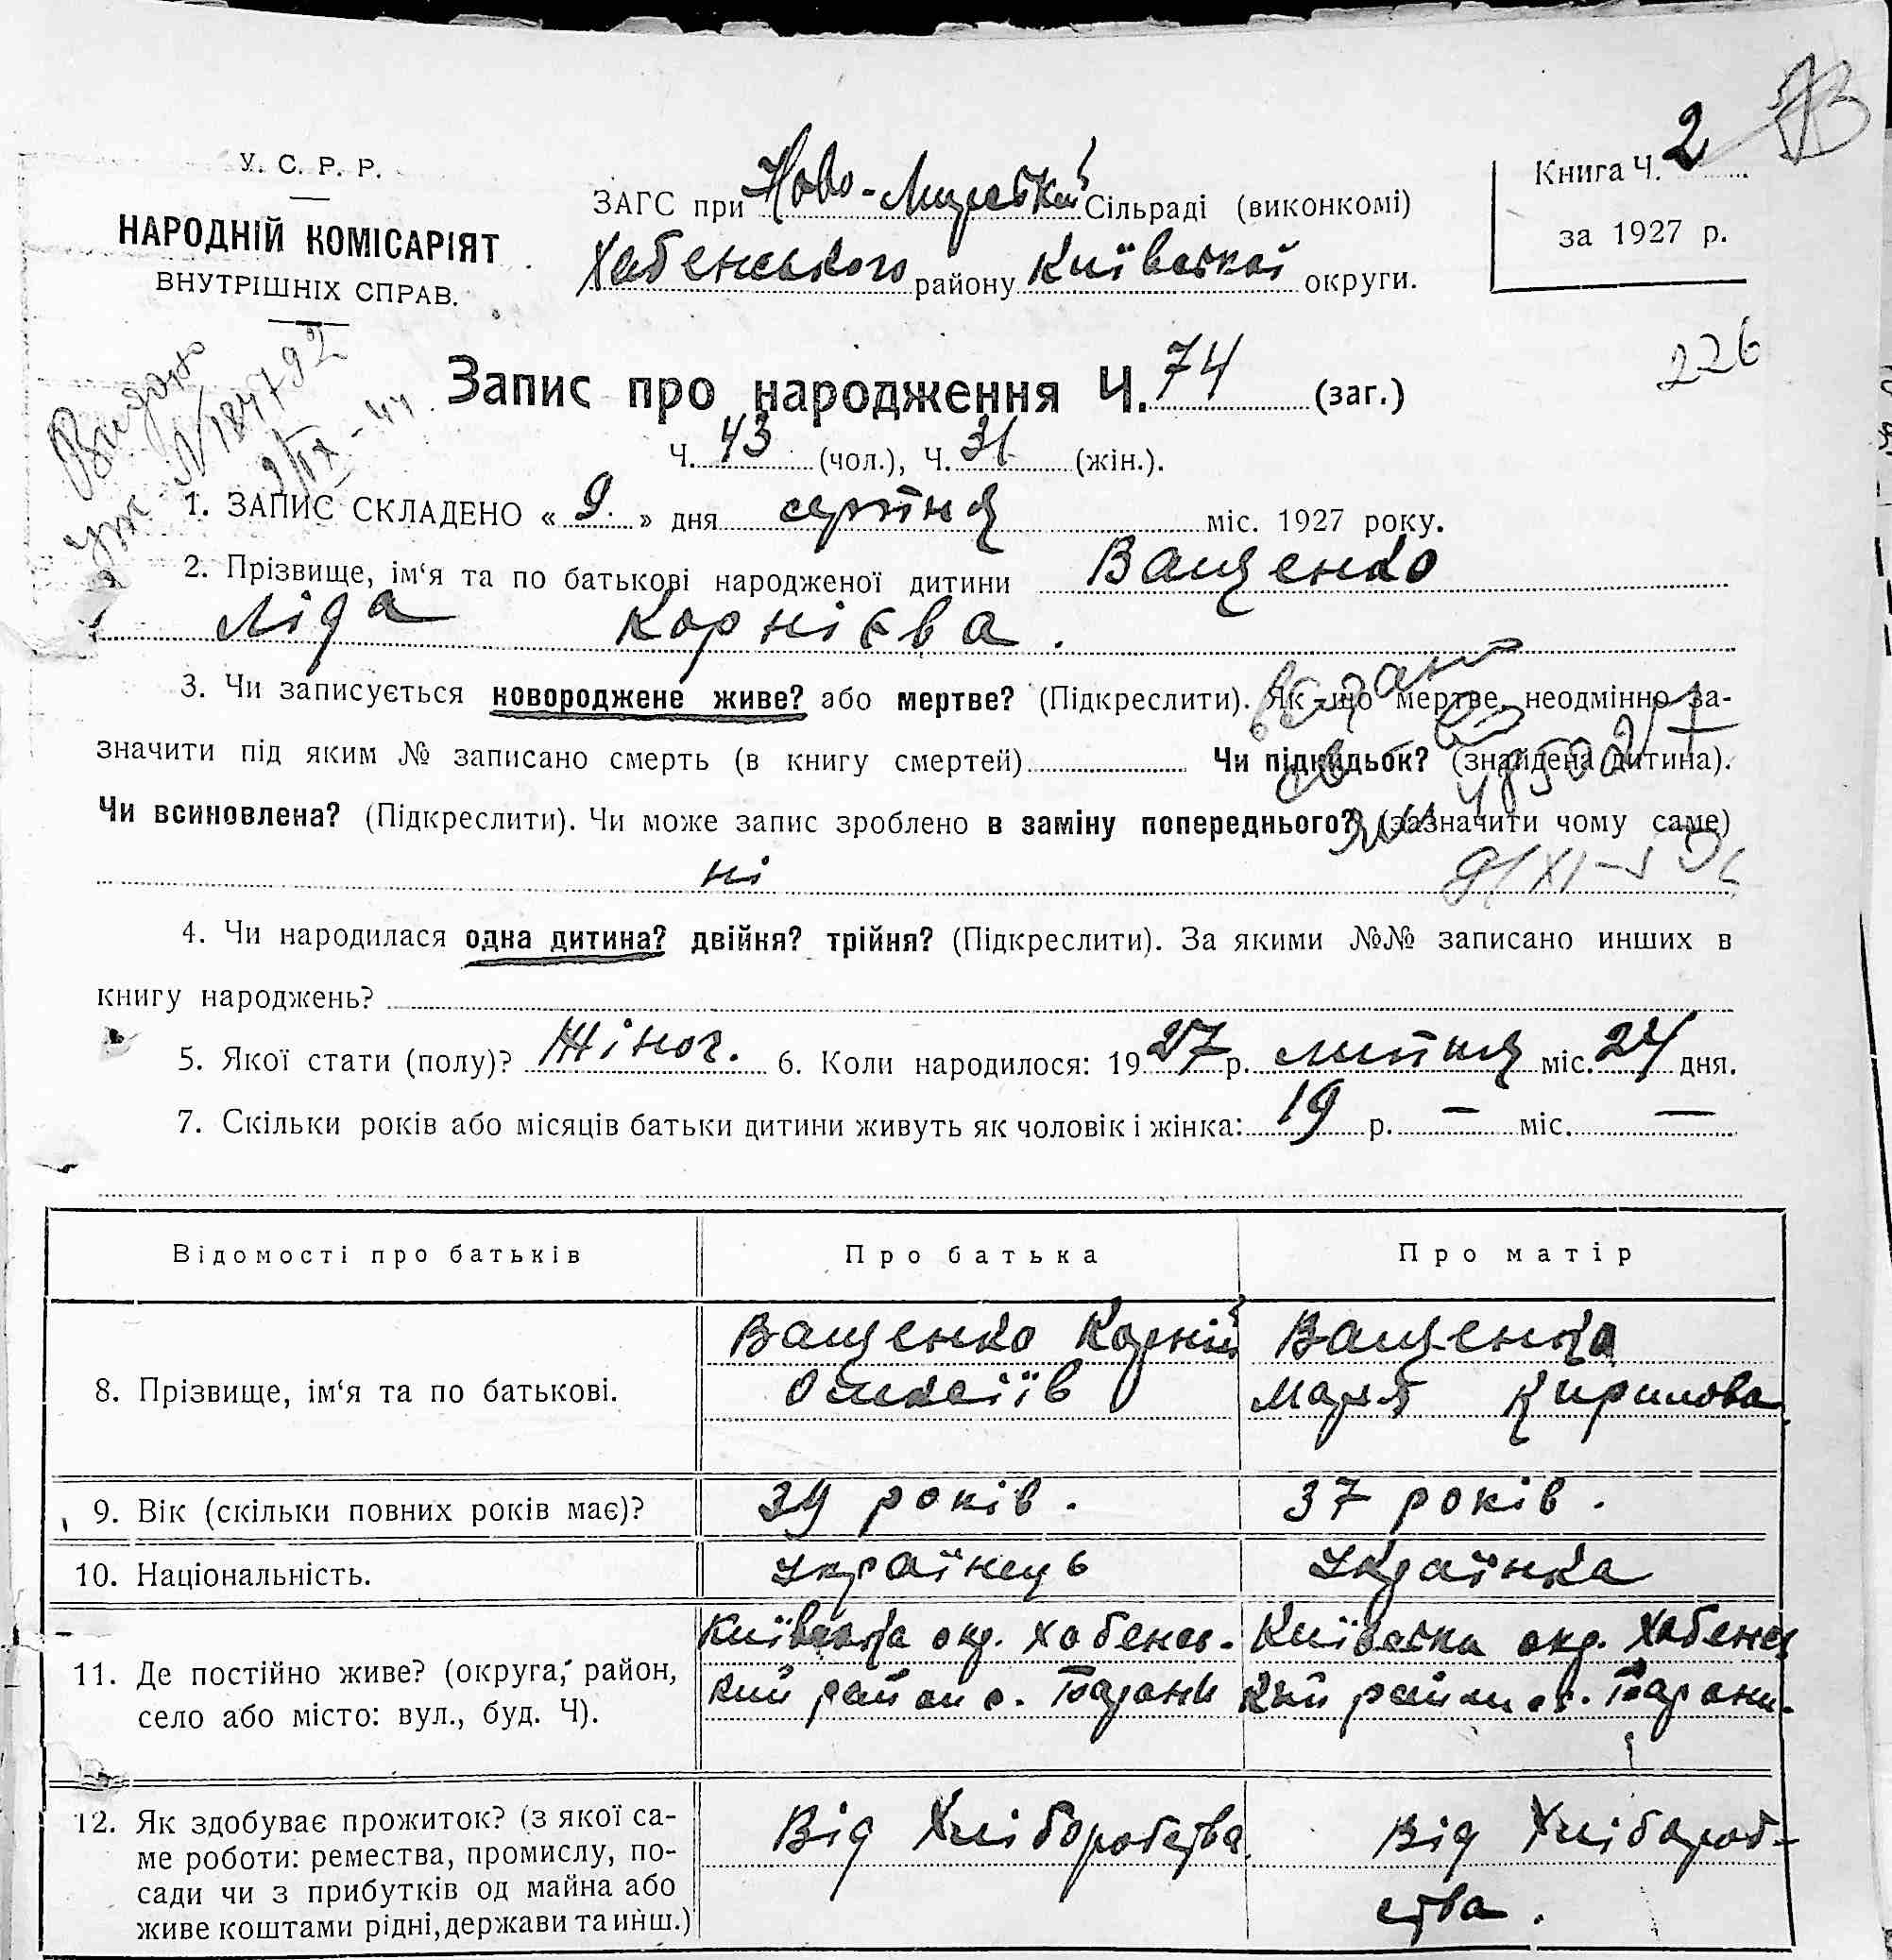 У. С. Р. Р.
НАРОДНІЙ КОМІСАРІЯТ
ВНУТРІШНІХ СПРАВ.
ЗАГС при Ново-Мирський Сільраді (виконкомі)
Хабенського району Київської округи.
Книга Ч. 2
за 1927 р.
226
Запис про народження Ч. 74 (заг.)
Ч. 43 (чол.), Ч. 31 (жін.).
1. ЗАПИС СКЛАДЕНО « 9 » дня серпня міс. 1927 року.
2. Прізвище, ім‘я та по батькові народженої дитини Ващенко
Ліда Корнієва.
3. Чи записується новороджене живе? або мертве? (Підкреслити). Як-що мертве, неодмінно за-
значити під яким № записано смерть (в книгу смертей) Чи підкидьок? (знайдена дитина).
Чи всиновлена? (Підкреслити). Чи може запис зроблено в заміну попереднього? (зазначити чому саме)
ні
4. Чи народилася одна дитина? двійня? трійня? (Підкреслити). За якими №№ записано инших в
книгу народжень?
5. Якої стати (полу)? Жіноч. 6. Коли народилося: 1927 р. липня міс. 24 дня.
7. Скільки років або місяців батьки дитини живуть як чоловік і жінка: 19 р. — міс. —
Відомості про батьків Про батька Про матір
8. Прізвище, ім‘я та по батькові.
Ващенко Корній
Олексіїв
Ващенко
Марія Кирилова
9. Вік (скільки повних років має)? 39 років. 37 років.
10. Національність. Українець Українка
11. Де постійно живе? (округа, район,
село або місто: вул., буд. Ч).
Київська окр. Хабенсь-
кий район с.
Київська окр. Хабенсь
кий район с.
12. Як здобуває прожиток? (з якої са-
ме роботи: ремества, промислу, по-
сади чи з прибутків од майна або
живе коштами рідні, держави та инш.)
Від Хліборобства
Від Хлібороб-
ства.